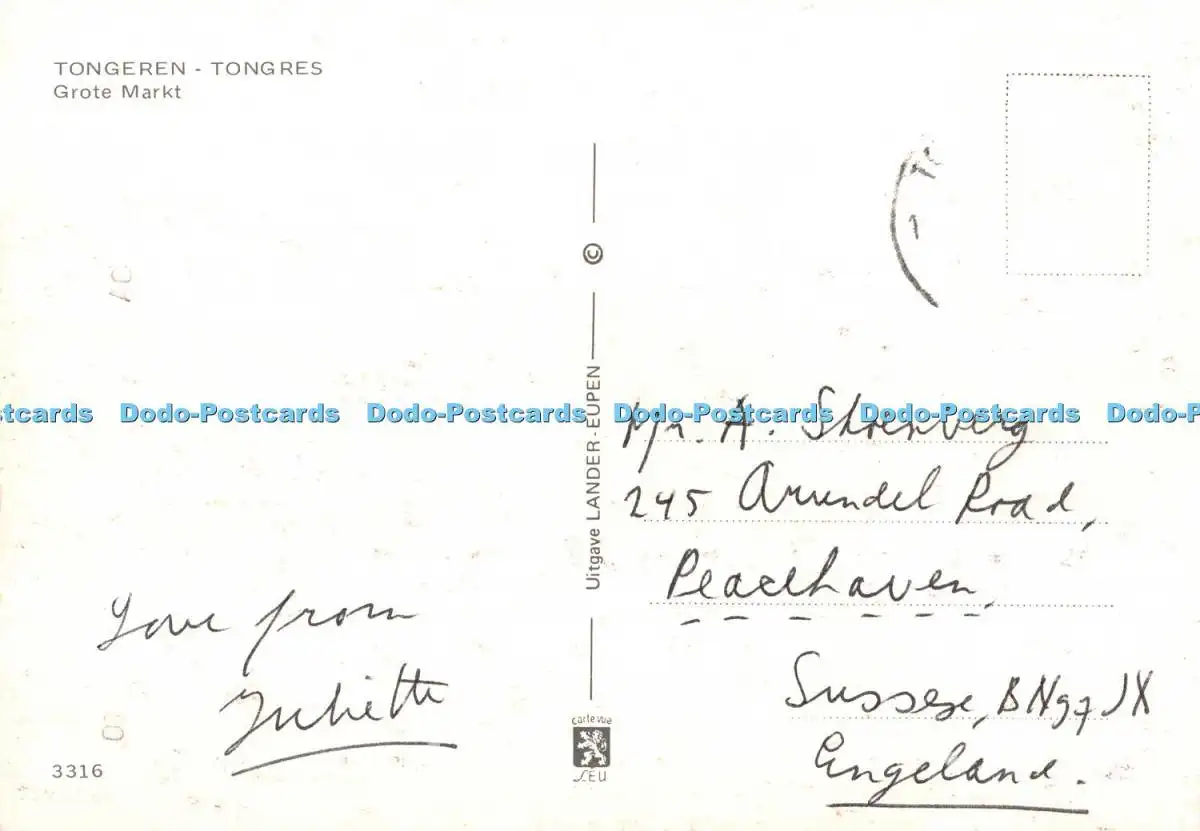 TONGEREN - TONGRES
Grote Markt
©
Uitgave LANDER-EUPEN
stcards Dodo-Postcards Dodo-Postcards Dodo-Postcards Dodo-Postcards Dodo-P
Mr. A.
245 Arundel Road,
Peacehaven,
Love from
Juliette
Sussex, BN97JX
Engeland.
carte vue
SEU
3316